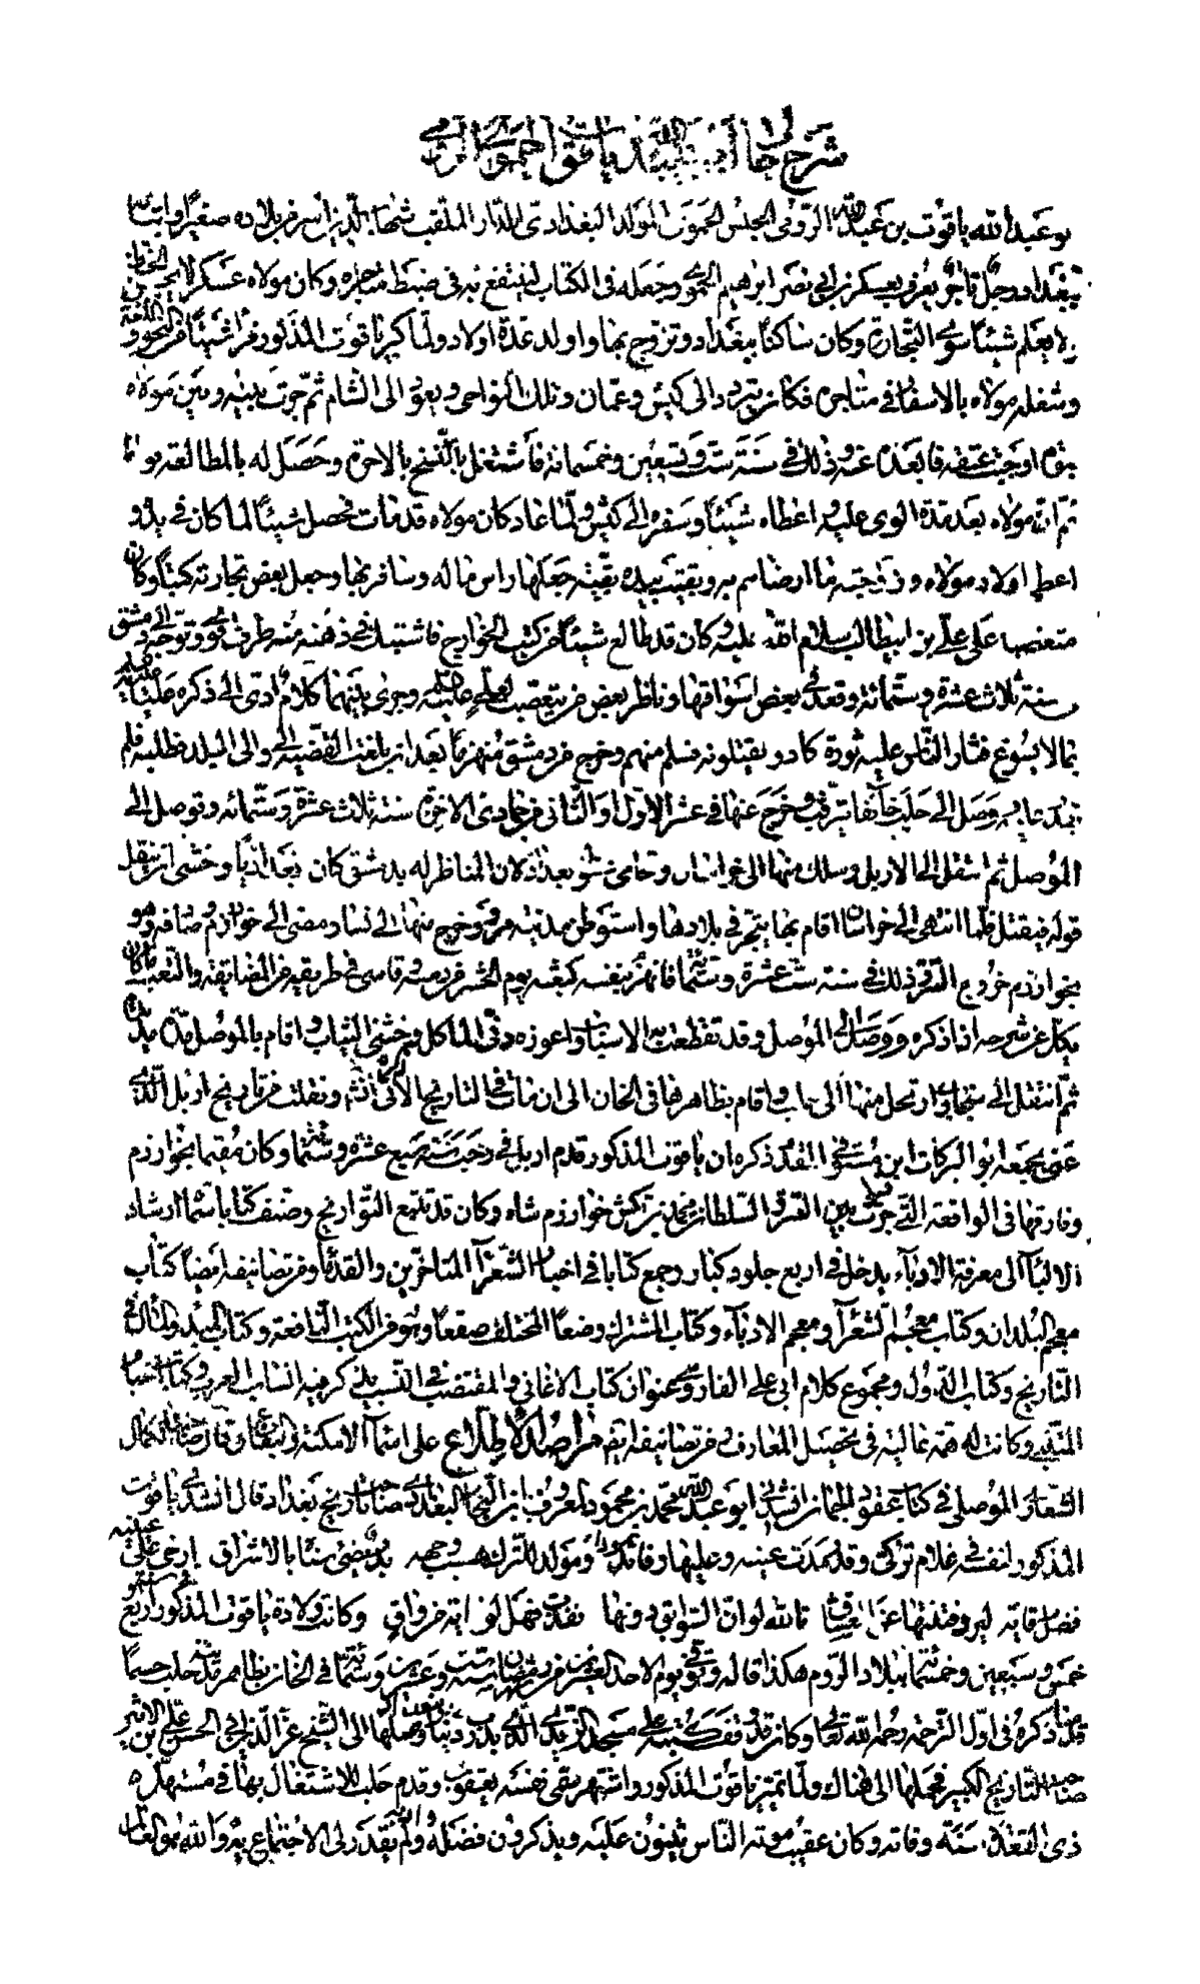 شرح حال أبي عبد الله ياقوت الحموي الرومي
هو عبد الله ياقوت بن عبد الله الرومي الجنس الحموي المولد البغدادي الدار الملقب شهاب الدين اسر من بلاده صغيرا وابتاعه
ببغداد رجل تاجر يعرف بعسكر بن ابي نصر ابراهيم الحموي وجعله في الكتاب لينتفع به في ضبط متاجره وكان مولاه عسكر لا يحسن الخط
ولا يعلم شيئا سوى التجارة وكان ساكنا ببغداد وتزوج بها واولد عدة اولاد ولما كبر ياقوت المذكور قرأ شيئا من النحو واللغة
وشغله مولاه بالاسفار في متاجره فكان يتردد الى كيش وعمان وتلك النواحي ويعود الى الشام ثم جرت بينه وبين مولاه
نبوة اوجبت عتقه فابعده عنه وذلك في سنة ست وتسعين وخمسمائة فاشتغل بالنسخ بالاجرة وحصل له بالمطالعة فوائد
ثم ان مولاه بعد مدة الوى عليه واعطاه شيئا وسفره الى كيش ولما عاد كان مولاه قد مات فحصل شيئا لما كان في يده و
اعطى اولاد مولاه وزوجته ما ارضاهم به وبقيت بيده بقية جعلها راس ماله وسافر بها وجعل بعض تجارته كتبا وكان
متعصبا على علي بن ابيطالب سلام الله عليه وكان قد طالع شيئا من كتب الخوارج فاشتبك في ذهنه منه طرف قوي وتوجه الى دمشق
سنة ثلاث عشرة وستمائة وقعد في بعض اسواقها وناظر بعض من يتعصب لعلي عليه السلم وجرى بينهما كلام ادى الى ذكره عليا عليه السلم
بما لا يسوغ فثار الناس عليه ثورة كادوا يقتلونه فسلم منهم وخرج من دمشق منهزما بعد ان بلغت القضية الى والي البلد فطلبه فلم
يقدر عليه ووصل الى حلب خائفا يترقب وخرج عنها في عشر الاول او الثاني من جمادى الاخرة سنة ثلاث عشرة وستمائة وتوصل الى
الموصل ثم انتقل الى الاربل وسلك منها الى خراسان وتحامى دخول بغداد لان المناظر له بدمشق كان بغداديا وخشى ان ينقل
قوله فيقتل فلما انتهى الى خراسان اقام بها يتجر في بلادها واستوطن مدينة مرو وخرج منها الى نسا ومضى الى خوارزم وصادفه وهو
بخوارزم خروج التتر وذلك في سنة ست عشرة وستمائة فانهزم بنفسه كبعثه يوم الحشر من رمسه وقاسى في طريقه من المضايقة والتعب ما كان
يكل عن شرحه اذا ذكره ووصل الى الموصل وقد تقطعت به الاسباب واعوزه دني الماكل وخشن الثياب واقام بالموصل مدة مديدة
ثم انتقل الى سنجار وارتحل منها الى حلب واقام بظاهرها في الخان الى ان مات في التاريخ الآتي ذكره ونقلت من تاريخ اربل الذي
عنى بجمعه ابو البركات ابن مستوفي المقدم ذكره ان ياقوت المذكور قدم اربل في رجب سنة سبع عشرة وستمائة وكان مقيما بخوارزم
وفارقها في الواقعة التي جرت بين التتر والسلطان محمد بن تكش خوارزم شاه وكان قد تتبع التواريخ وصنف كتابا سماه ارشاد
الالباء الى معرفة الادباء يدخل في اربع جلود كبار وجمع كتابا في اخبار الشعراء المتاخرين والقدماء ومن تصانيفه ايضا كتاب
معجم البلدان وكتاب معجم الشعراء ومعجم الادباء وكتاب المشترك وضعا المختلف صقعا وهو من الكتب النافعة وكتاب المبدء والمآل في
التاريخ وكتاب الدول ومجموع كلام ابي علي الفارسي وعنوان كتاب الاغاني والمقتضب في النسب يذكر فيه انساب العرب وكتاب اخبار
المتنبي وكانت له همة عالية في تحصيل المعارف ومن تصانيفه ايضا مراصد الاطلاع على اسماء الامكنة والبقاع وقال صاحب الكمال
الشعار الموصلي في كتاب عقود الجمان انشدني ابو عبد الله محمد بن محمود المعروف بابن النجار البغدادي صاحب تاريخ بغداد قال انشدني ياقوت
المذكور لنفسه في غلام تركي وقد رمدت عينه وعليها وقاية سوداء ومولد للترك تحسب وجهه بدرا يضيئ سناه بالاشراق ارخى على عينيه
فضل وقاية ليرد فتنتها عن العشاق تالله لو ان السوابق دونها نفذت فهل لوقاية من واق وكانت ولادة ياقوت المذكور اربع او
خمس وسبعين وخمسمائة ببلاد الروم هكذا قاله وتوفي يوم الاحد العشرين من رمضان سنة ست وعشرين وستمائة في الخان بظاهر مدينة حلب حسبما
قدمنا ذكره في اول الترجمة رحمه الله تعالى وكان قد وقف كتبه على مسجد الزيدي الذي بدرب دينار ببغداد وسلمها الى الشيخ عز الدين ابي الحسن علي بن الاثير
صاحب التاريخ الكبير فحملها الى هناك ولما تميز ياقوت المذكور واشتهر سمى نفسه يعقوب وقدم حلب للاشتغال بها في مستهل
ذى القعدة سنة وفاته وكان عقيب موته الناس يثنون عليه ويذكرون فضله وادبه ولم يقدر لي الاجتماع به والله هو العالم